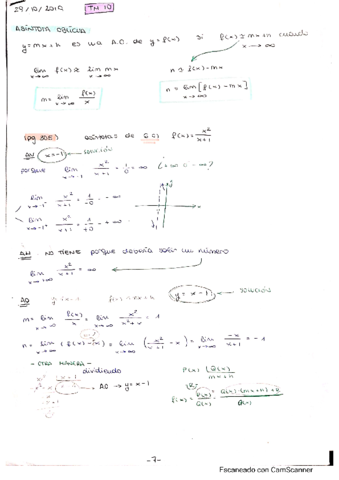 29/10/2019 TM 10
ASÍNTOTA OBLICUA
y = mx + n es una A.O. de y = f(x) si f(x) ≅ mx + n cuando x → ∞
lim f(x) ≅ lim mx
n ≅ f(x) - mx
m = lim f(x)/x
n = lim [f(x) - mx]
(pg 308) asíntotas de f(x) = x²/(x+1)
AV x = -1 ← SOLUCIÓN
porque lim x→-1 x²/(x+1) = 1/0 = ∞ ¿+∞ o -∞?
lim x²/(x+1) = 1/-0 = -∞
lim x²/(x+1) = 1/+0 = +∞
AH NO TIENE porque debería salir un número
lim x→∞ x²/(x+1) = ∞
AO y = x - 1 ← SOLUCIÓN
m = lim f(x)/x = lim x²/(x²+x) = 1
n = lim (f(x) - x) = lim (x²/(x+1) - x) = lim -x/(x+1) = -1
- OTRA MANERA -
dividiendo
AO → y = x - 1
-7-
Escaneado con CamScanner